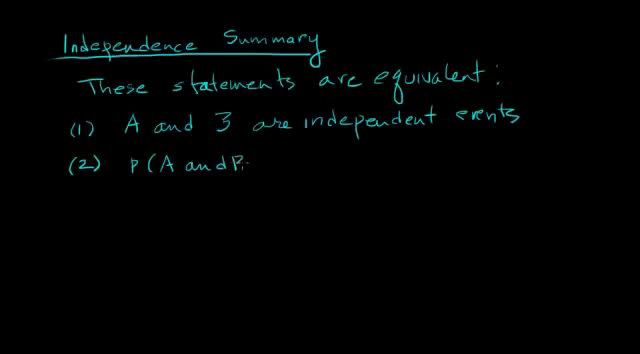 Independence Summary
These statements are equivalent:
(1) A and B are independent events
(2) P(A and B